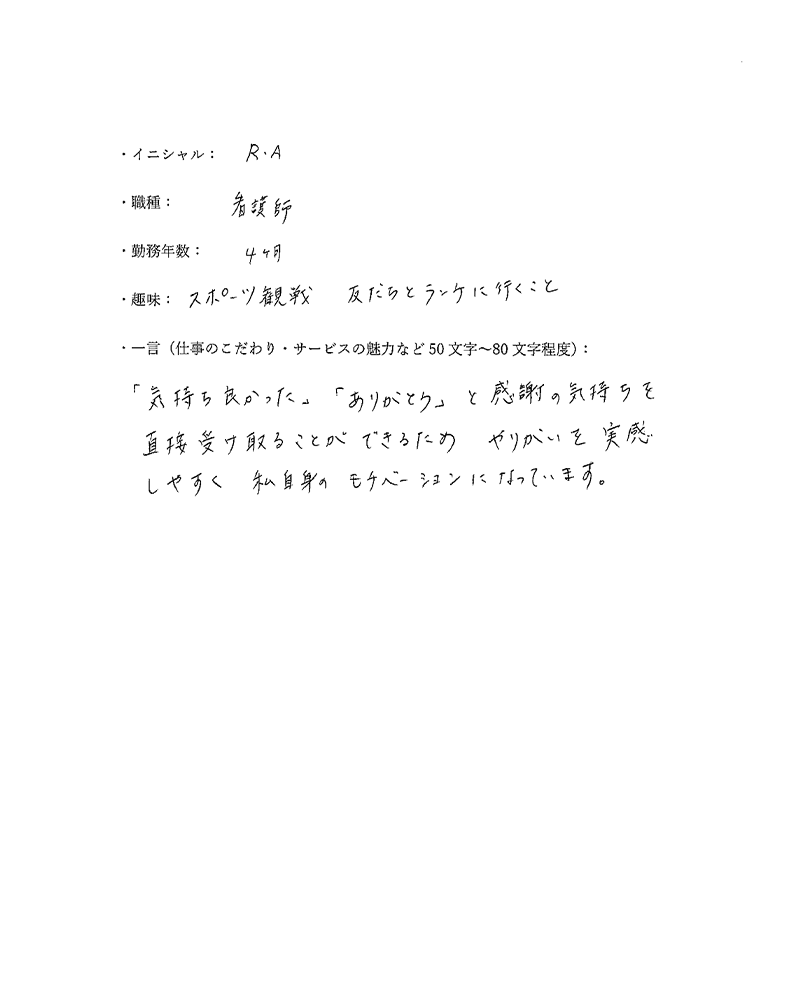 ・イニシャル： R.A
・職種： 看護師
・勤務年数： 4ヶ月
・趣味： スポーツ観戦　友だちとランチに行くこと
・一言（仕事のこだわり・サービスの魅力など 50 文字～80 文字程度）：
「気持ち良かった」「ありがとう」と感謝の気持ちを
直接受け取ることができるため　やりがいを実感
しやすく　私自身のモチベーションになっています。